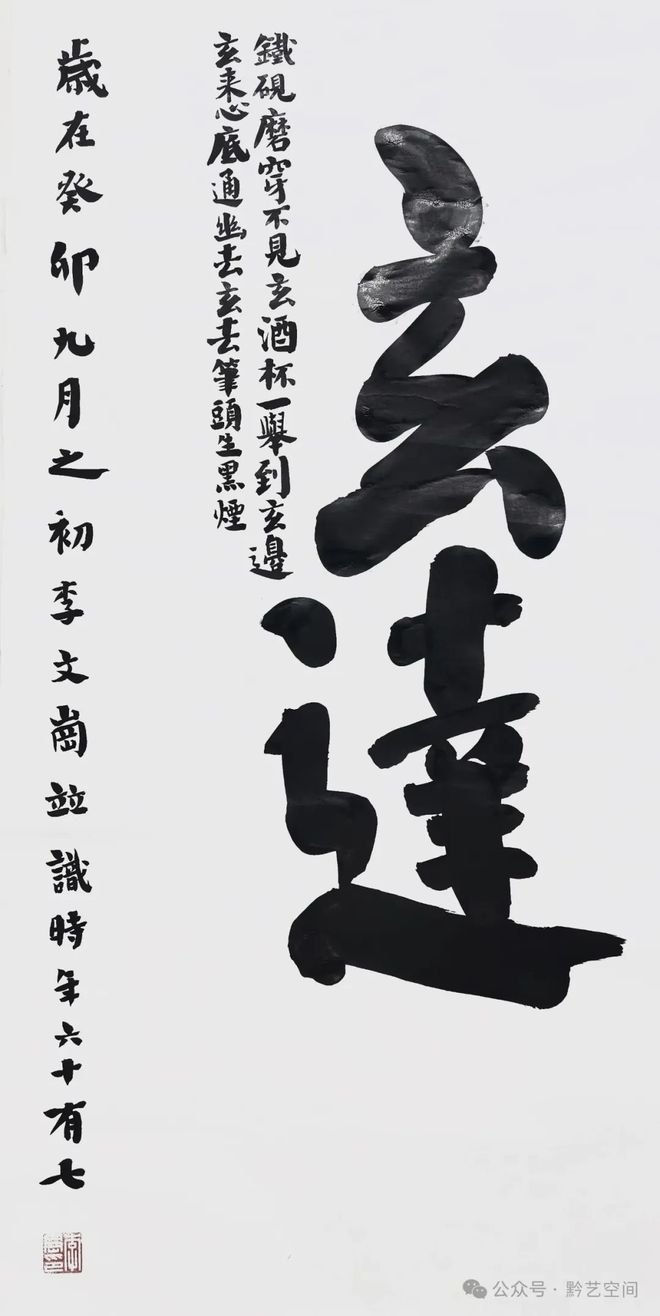 玄達
鐵硯磨穿不見玄酒杯一舉到玄邊
玄来心底通幽去玄去筆頭生黑煙
歲在癸卯九月之初李文崗竝識時年六十有七
公众号·黔艺空间